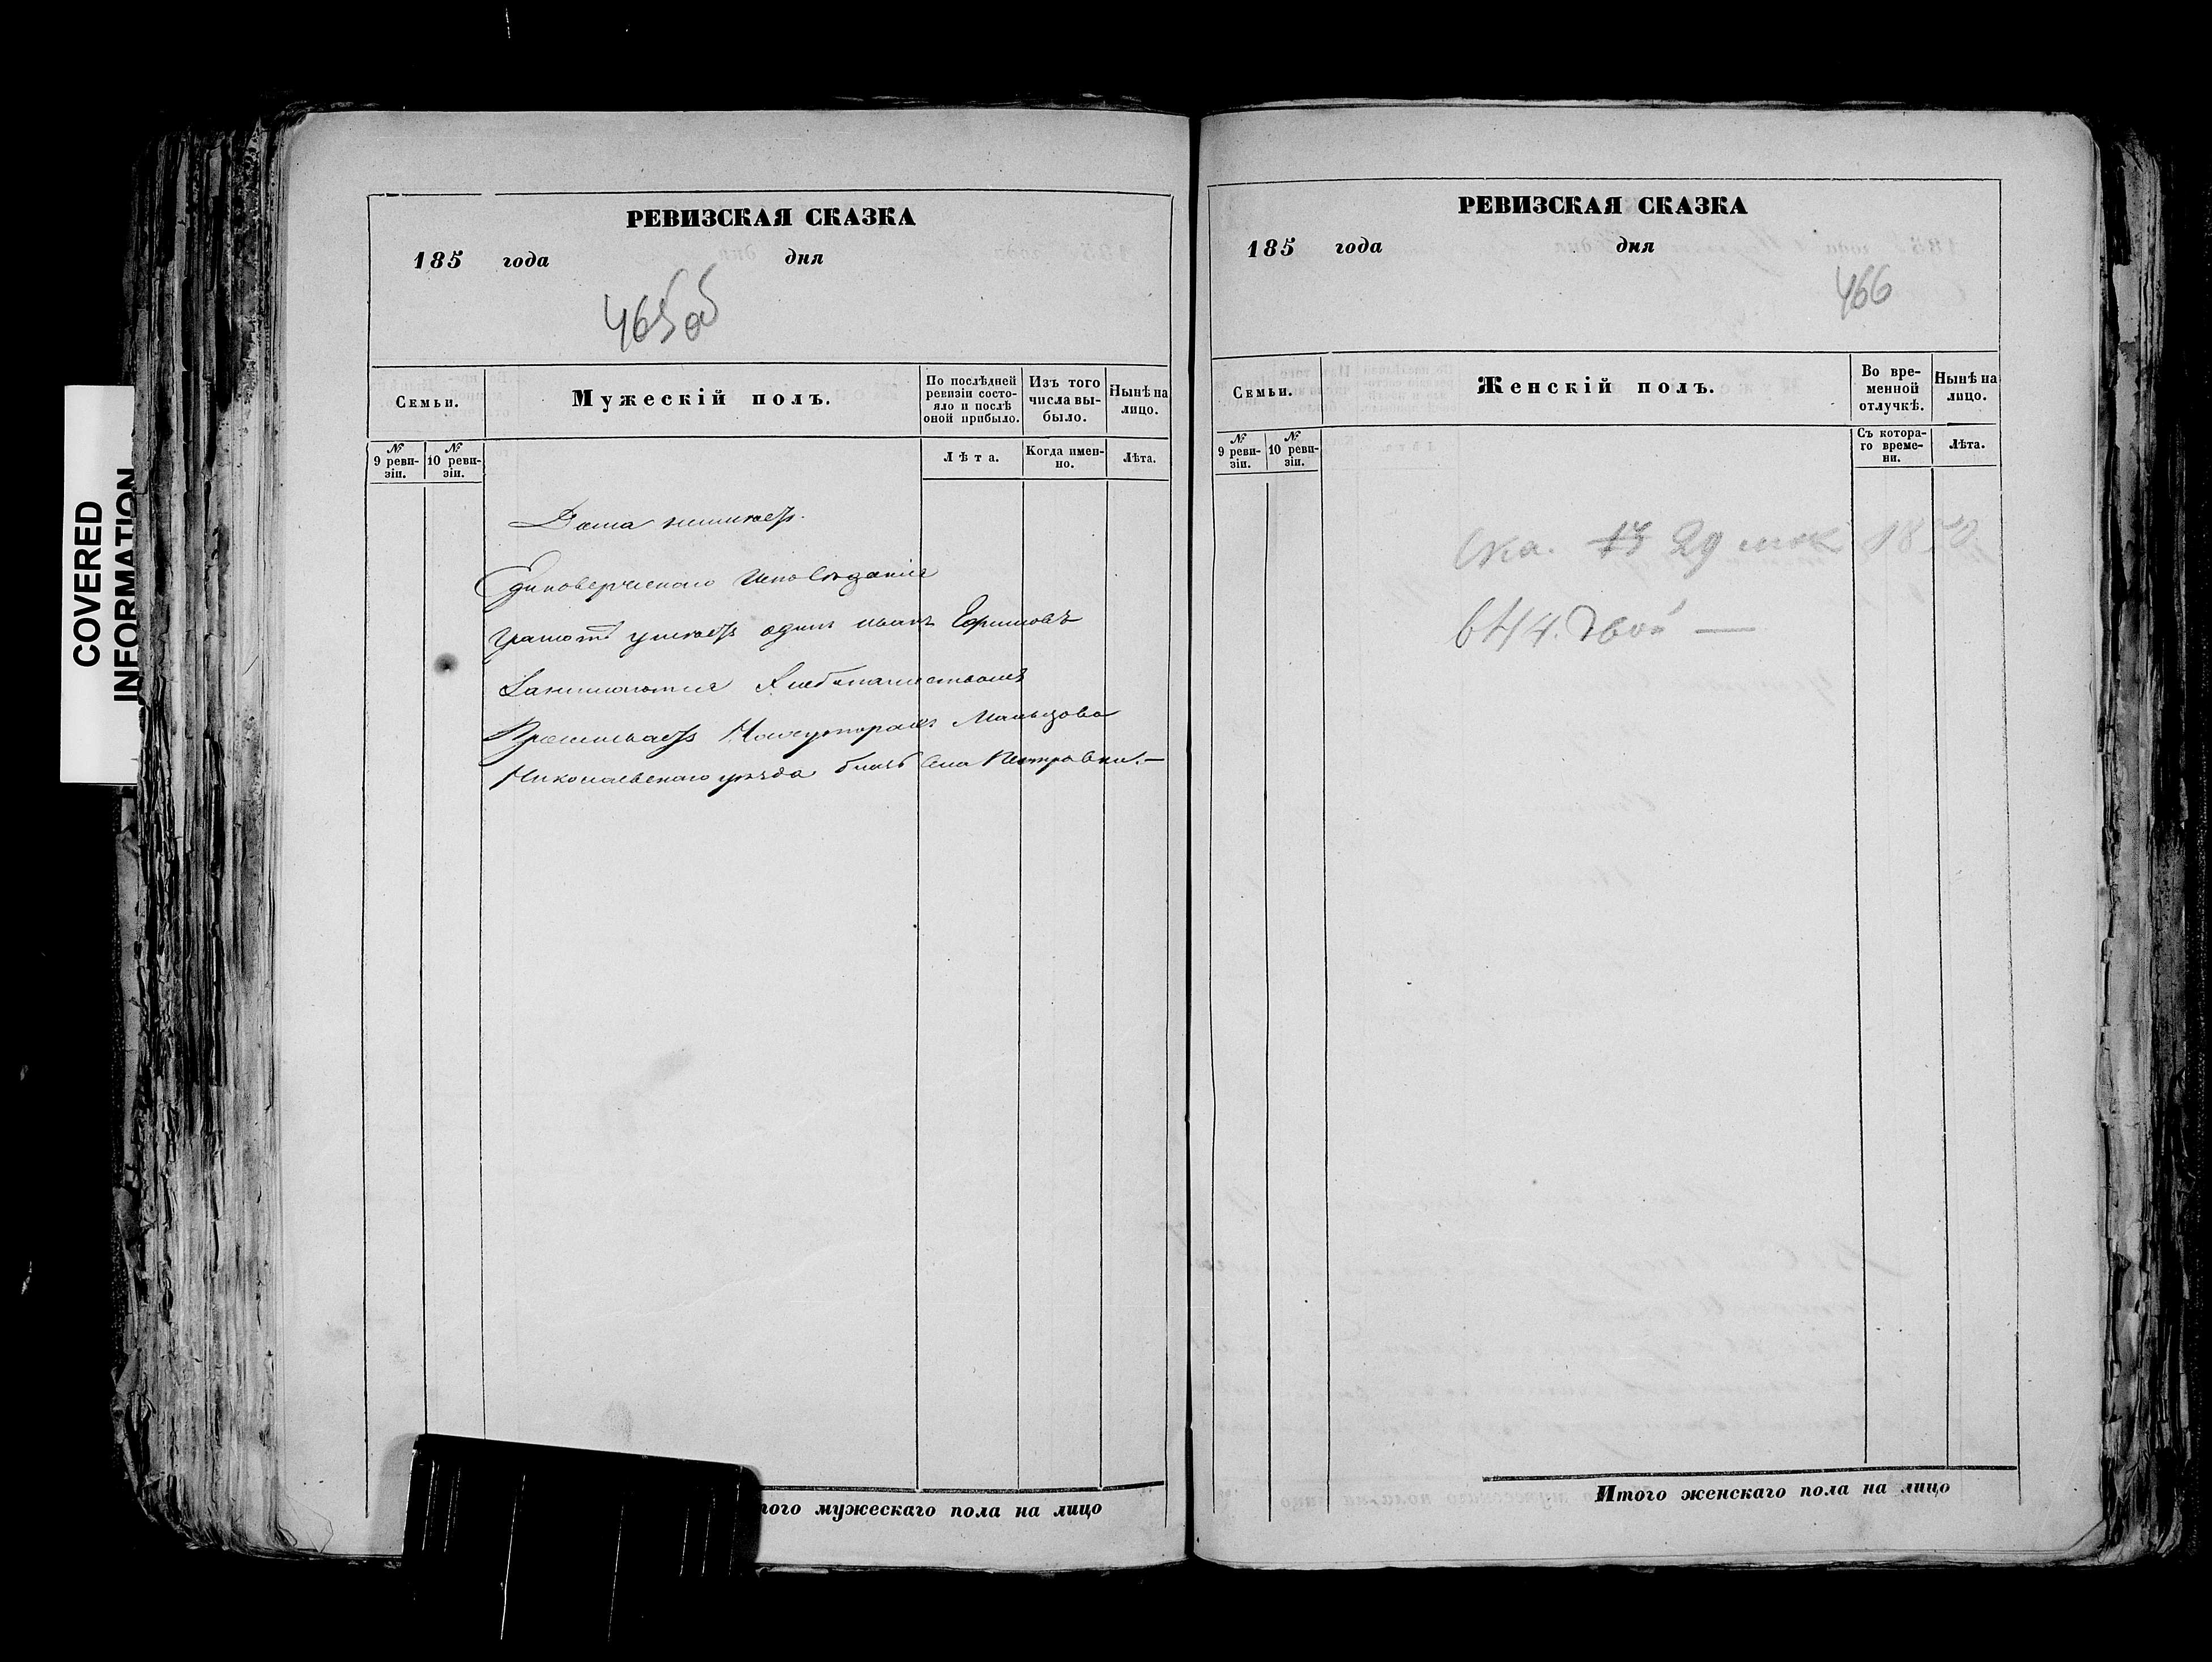 COVERED
INFORMATION
РЕВИЗСКАЯ СКАЗКА
185 года дня
465об
Семьи.
Мужескій полъ.
По послѣдней ревизіи состояло и послѣ оной прибыло.
Изъ того числа выбыло.
Нынѣ на лицо.
№ 9 ревизіи.
№ 10 ревизіи.
Лѣта.
Когда именно.
Лѣта.
Дома неимѣетъ.
Единоверческаго исповѣданія
Грамотѣ умѣетъ одинъ Иванъ Ефимовъ
Занимаются Хлебопашествомъ
Мальцова
Николаевскаго уезда близъ Петровки. —
того мужескаго пола на лицо
РЕВИЗСКАЯ СКАЗКА
185 года дня
466
Семьи.
Женскій полъ.
Во временной отлучкѣ.
Нынѣ на лицо.
№ 9 ревизіи.
№ 10 ревизіи.
Съ котораго времени.
Лѣта.
Ска. 29 1850
Итого женскаго пола на лицо